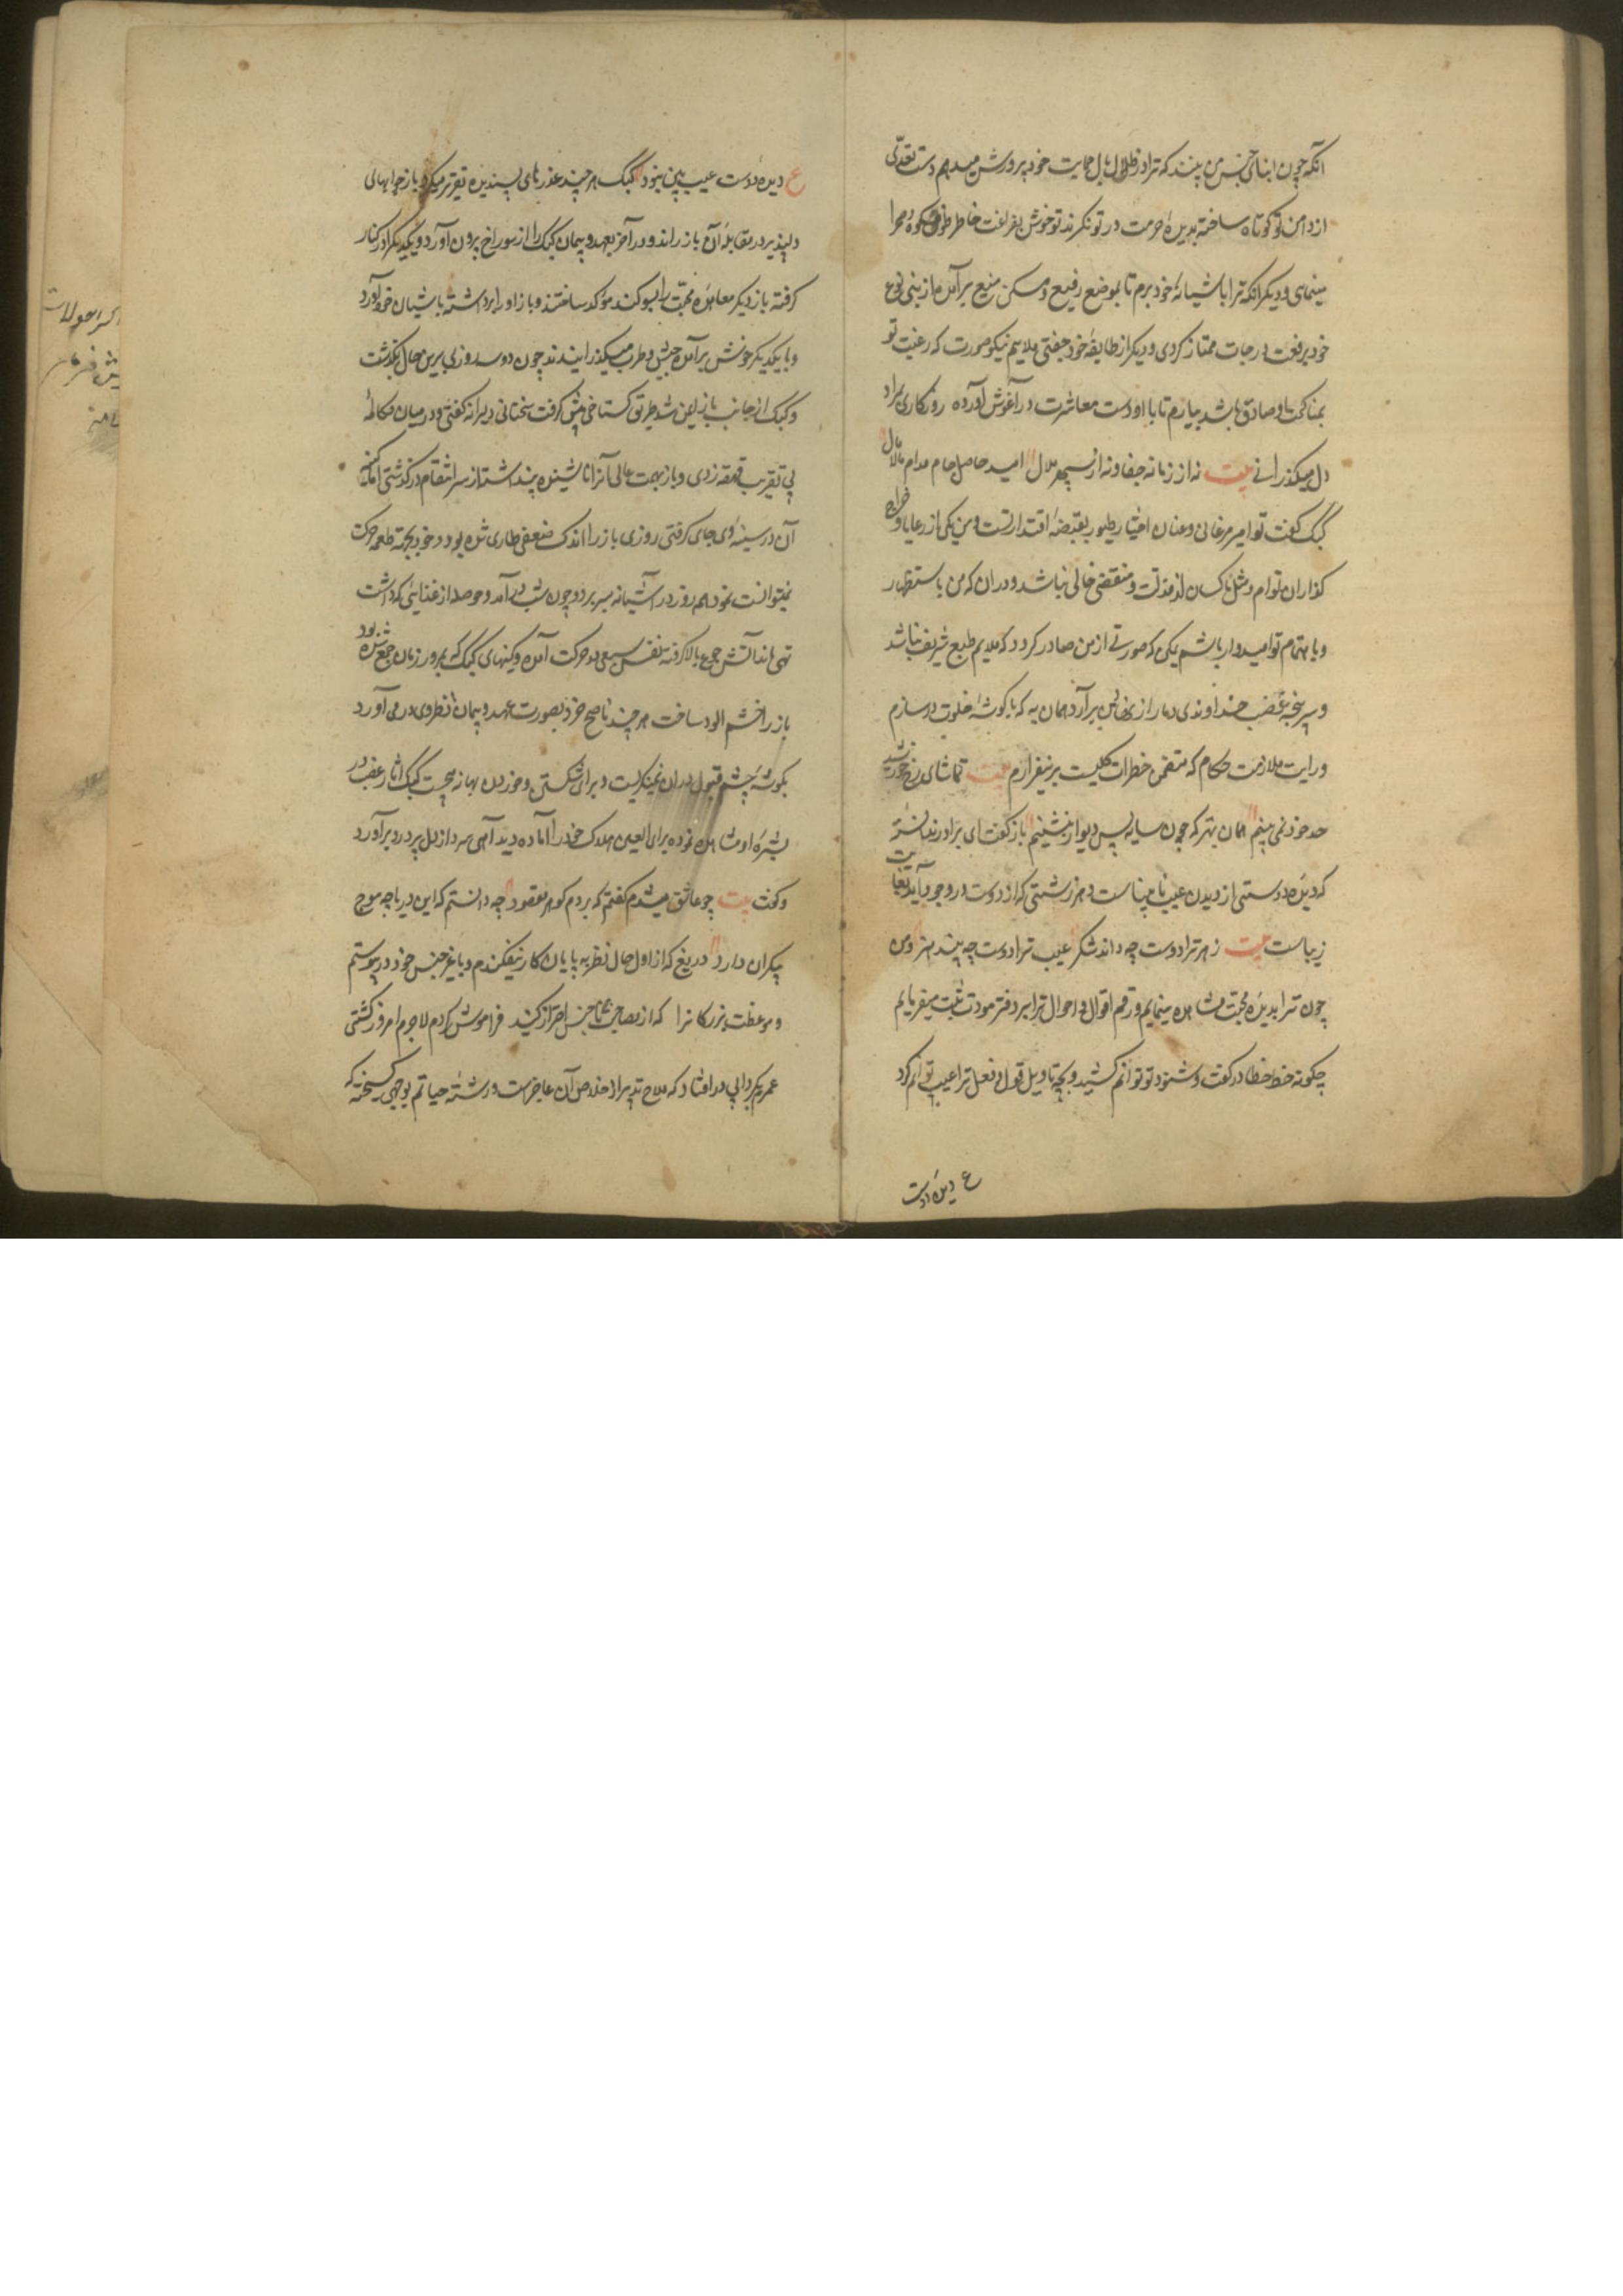 انکه چون ابنای جنس من بینند که ترا در ظلال بال حمایت خود پرورش میدهم دست تعدّی
از دامن تو کوتاه ساخته بدیدهٔ حرمت در تو نکرند تو خوش بفراغت خاطر طوف کوه و صحرا
مینمای و دیکر انکه ترا باشیانهٔ خود برم تا بموضع رفیع و مسکن منیع برآمده از بنی نوع
خود برفعت درجات ممتاز کردی و دیکر از طایفهٔ خود جفتی ملایم نیکو صورت که رغبت تو
بمناکحت او صادق باشد بیارم تا با او دست معاشرت در آغوش آورده روزکاری بمراد
دل میکذرانی بیت نه از زمانه جفا و نه از سپهر ملال امید حاصل و جام مدام مالامال
کبک کفت تو امیر مرغانی و عنان اختیار طیور بقبضهٔ اقتدار تست و من یکی از رعایا و خراج
کذاران توام و مثل ما کسان از مذلت و منقصتی خالی نباشد و دران که من باستظهار
و باهتمام تو امیدوار باشم یمکن که صورتی از من صادر کردد که ملایم طبع شریف نباشد
و سرپنجهٔ غضب خداوندی دمار از نهاد من برآرد همان به که با کوشهٔ خلوت درسازم
و رایت ملازمت حکام که متضمن خطرات کلیست برنیفرازم بیت تماشای رخ خورشید
حد خود نمی بینم همان بهتر که چون سایه پس دیوار بنشینم باز کفت ای برادر ندانستهٔ
که دیدهٔ دوستی از دیدن عیب نابیناست و هر زشتی که از دوست در وجود آید بغایت
زیباست بیت زهر ترا دوست چه داند شکر عیب ترا دوست چه بیند هنر و من
چون ترا بدیدهٔ محبت مشاهده مینمایم و رقم اقوال و احوال ترا بر دفتر مودت ثبت میفرمایم
چکونه خط خطا در کفت و شنود تو توانم کشید و بچه تاویل قول و فعل ترا عیب توانم کرد
ع دیدهٔ دوست
ع دیدهٔ دوست عیب بین نبود کبک هر چند عذرهای پسندیده تقریر میکرد باز جوابهای
دلپذیر در مقابلهٔ آن بازراند و در آخر بعهد و پیمان کبک را از سوراخ بیرون آورد و یکدیکر را در کنار
کرفته باز دیکر معاهدهٔ محبت را بسوکند مؤکد ساختند و باز او را برداشته باشیان خود آورد
و با یکدیکر خوش برآمده بعیش و طرب میکذرانیدند چون دو سه روزی برین حال بکذشت
و کبک از جانب باز ایمن شد طریق کستاخی پیش کرفت سخنانی دلیرانه کفتی و در میان مکالمهٔ
بی تقریب قهقهه زدی و باز بهمت عالی آنرا ناشنیده پنداشته از سر انتقام درکذشتی اما کینهٔ
آن در سینهٔ وی جای کرفتی روزی باز را اندک ضعفی طاری شده بود و خود بجهة طعمه حرکت
نمیتوانست نمود همه روز در آشیانه بسر برد و چون شب درآمد و حوصله از غذایی که داشت
تهی ماند آتش جوع بالا کرفته نفس سبعی در حرکت آمده و کینهای کبک که بمرور زمان جمع شده بود
باز را خشم الود ساخت هر چند ناصح خرد بصورت عهد و پیمان در نظر وی درمی آورد
بکوشهٔ چشم قبول دران نمینکریست و برای شکستن و خوردن بهانه میجست کبک اثار غضب در
بشرهٔ او مشاهده نموده برای العین هلاک خود را آماده دید آهی سرد از دل پردرد برآورد
و کفت بیت چو عاشق میشدم کفتم که بردم کوهر مقصود چه دانستم که این دریا چه موج
بیکران دارد دریغ که از اول حال نظر به پایان کار نیفکندم و با غیر جنس خود درپیوستم
و موعظت بزرکانرا که از مصاحبت ناجنس احتراز کنید فراموش کردم لاجرم امروز کشتی
عمرم بکردابی درافتاد که ملاح تدبیر از خلاص آن عاجزست و رشتهٔ حیاتم بوجهی کسیخته که